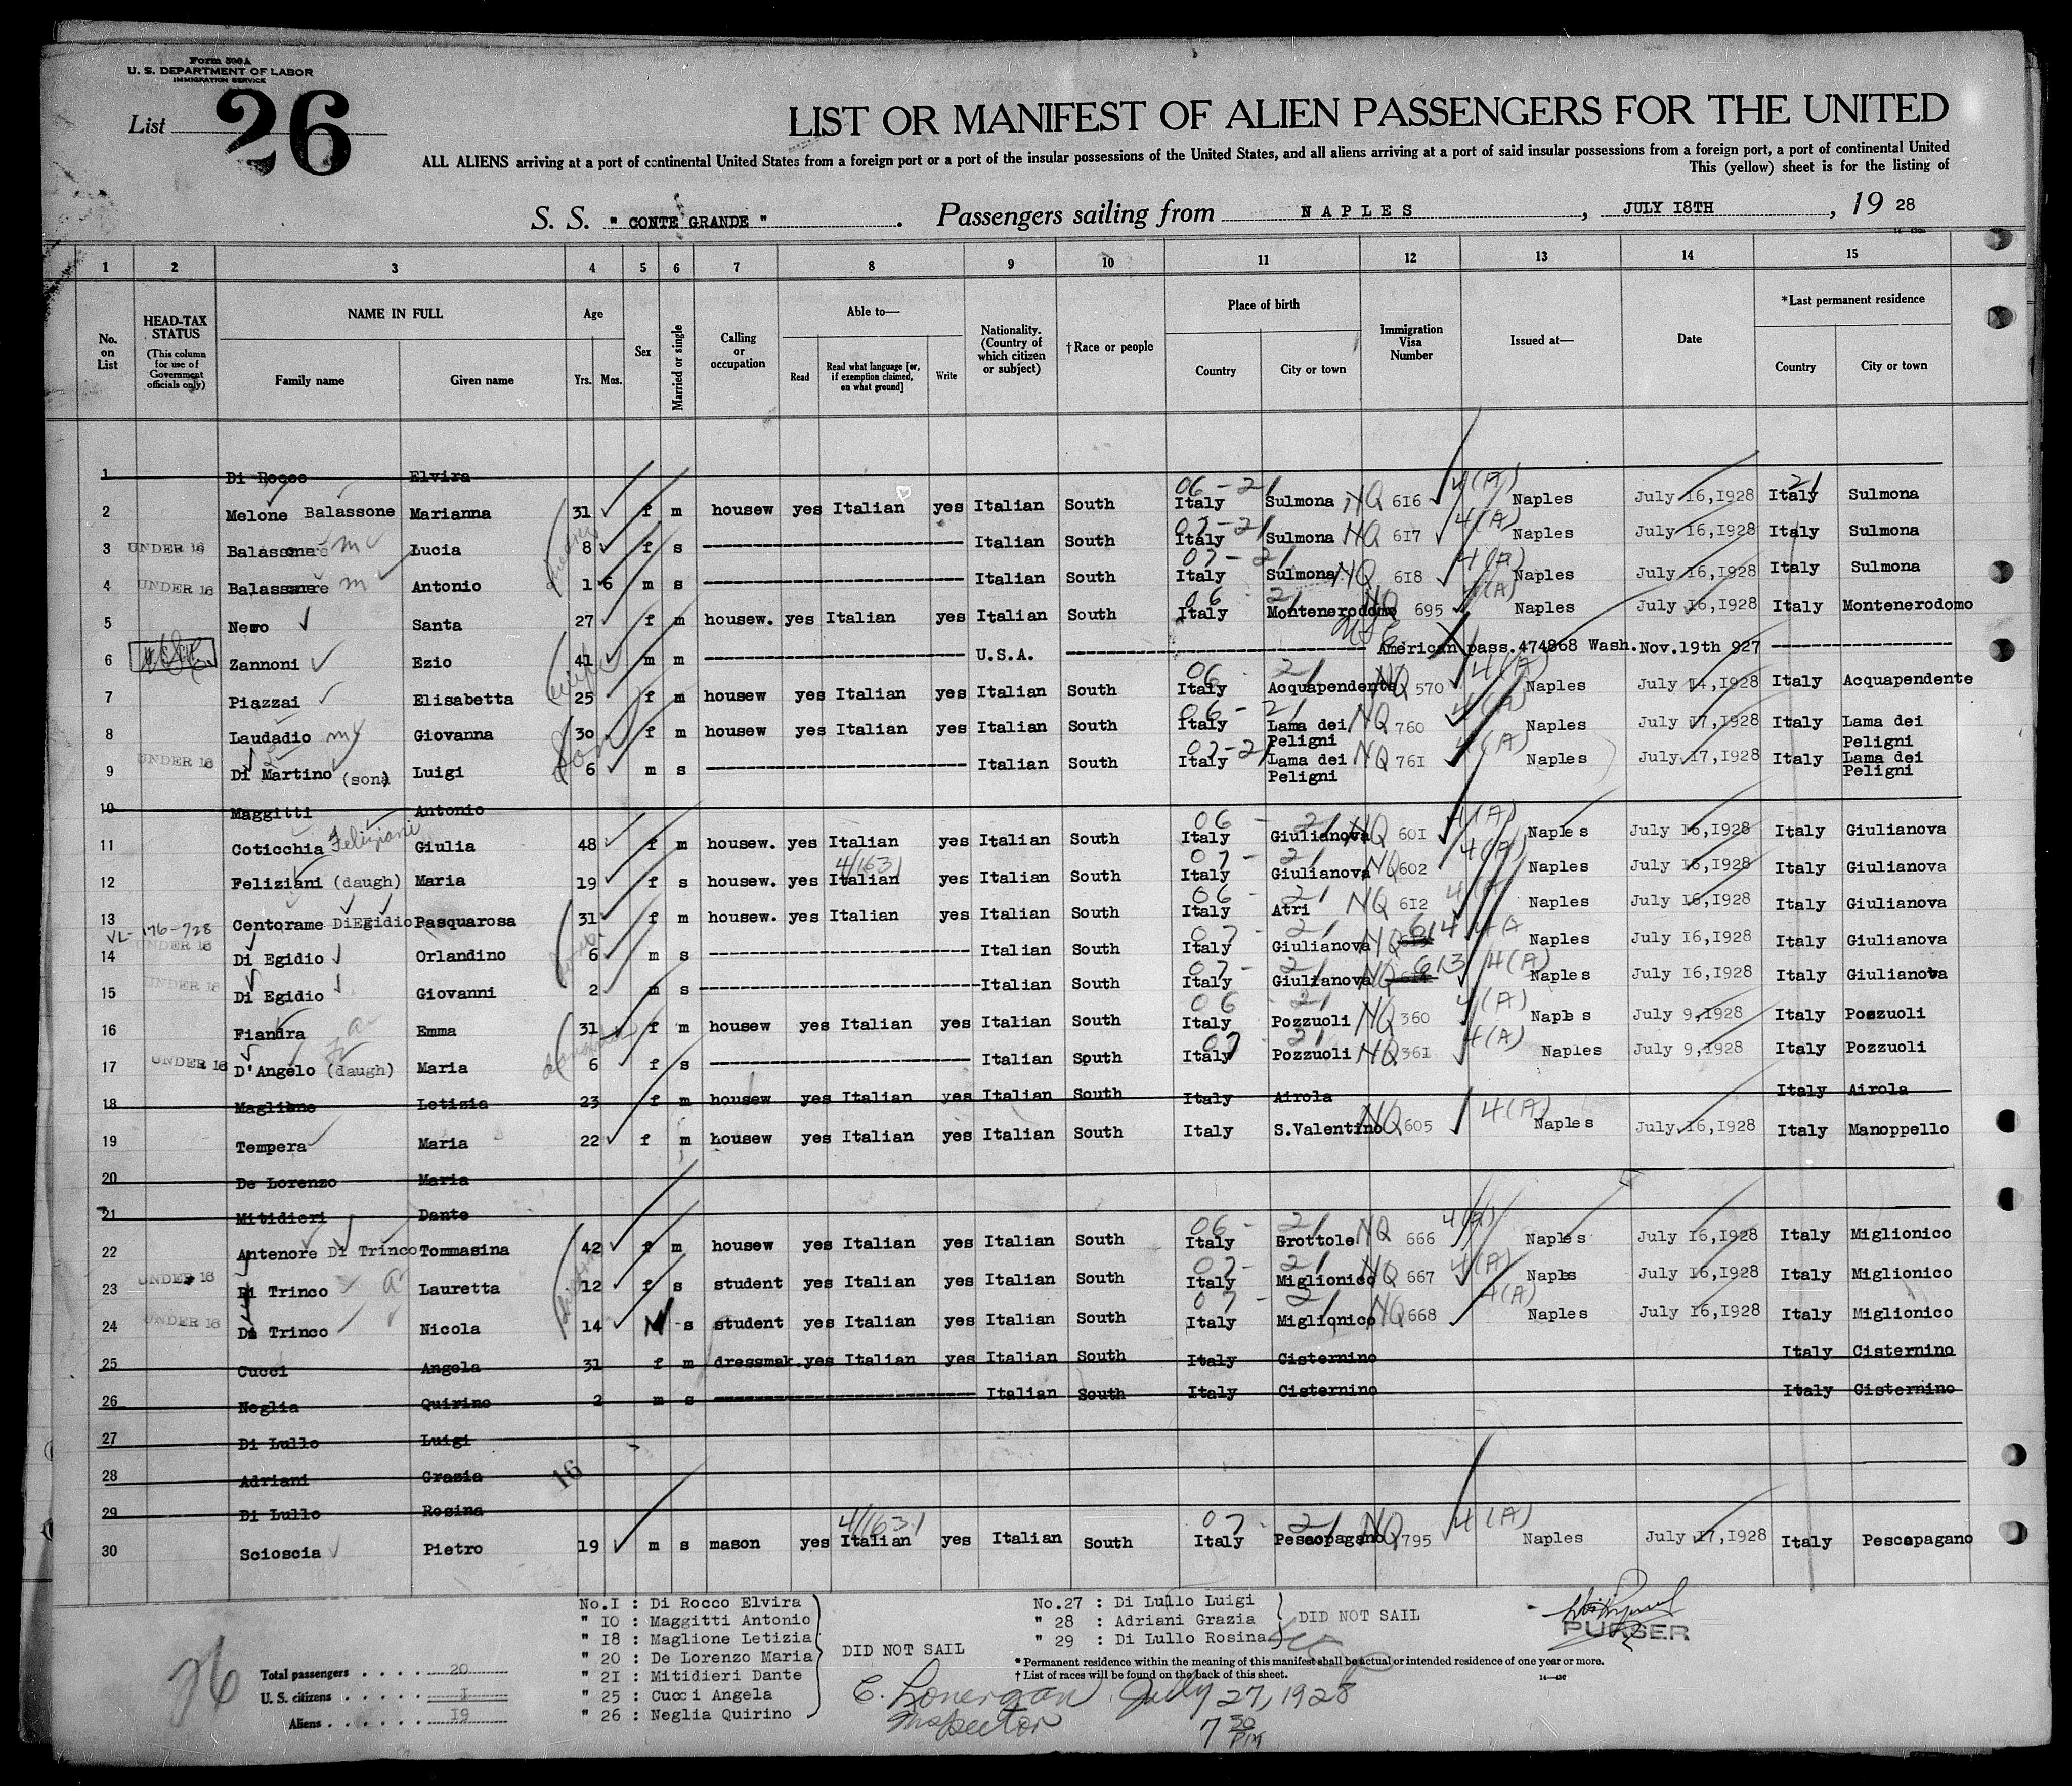 Form 500 A
U. S. DEPARTMENT OF LABOR
IMMIGRATION SERVICE
List 26
LIST OR MANIFEST OF ALIEN PASSENGERS FOR THE UNITED
ALL ALIENS arriving at a port of continental United States from a foreign port or a port of the insular possessions of the United States, and all aliens arriving at a port of said insular possessions from a foreign port, a port of continental United
This (yellow) sheet is for the listing of
S. S. " CONTE GRANDE ". Passengers sailing from NAPLES, JULY I8TH, 19 28
1 2 3 4 5 6 7 8 9 10 11 12 13 14 15
No. on List
HEAD-TAX STATUS (This column for use of Government officials only)
NAME IN FULL Family name Given name
Age Yrs. Mos.
Sex
Married or single
Calling or occupation
Able to— Read Read what language [or, if exemption claimed, on what ground] Write
Nationality. (Country of which citizen or subject)
†Race or people
Place of birth Country City or town
Immigration Visa Number
Issued at—
Date
*Last permanent residence Country City or town
1 Di Rocco Elvira
2 Melone Balassone Marianna 31 f m housew yes Italian yes Italian South 06 - 21 Italy Sulmona NQ 616 4(A) Naples July 16,1928 21 Italy Sulmona
3 UNDER 16 Balassone m Lucia 8 f s Italian South 07 - 21 Italy Sulmona NQ 617 4(A) Naples July 16,1928 Italy Sulmona
4 UNDER 16 Balassone m Antonio 1 6 m s Italian South 07 - 21 Italy Sulmona NQ 618 4(A) Naples July 16,1928 Italy Sulmona
5 Nero Santa 27 f m housew. yes Italian yes Italian South 06 21 Italy Montenerodomo NQ 695 4(A) Naples July 16,1928 Italy Montenerodomo
6 Zannoni Ezio 41 m m U.S.A. American pass.474868 Wash. Nov.19th 927
7 Piazzai Elisabetta 25 f m housew yes Italian yes Italian South 06 21 Italy Acquapendente NQ 570 4(A) Naples July 14,1928 Italy Acquapendente
8 Laudadio Giovanna 30 f m housew yes Italian yes Italian South 06 - 21 Italy Lama dei Peligni NQ 760 4(A) Naples July 17,1928 Italy Lama dei Peligni
9 UNDER 16 Di Martino (son) Luigi 6 m s Italian South 07 - 21 Italy Lama dei Peligni NQ 761 4(A) Naples July 17,1928 Italy Lama dei Peligni
10 Maggitti Antonio
11 Coticchia Feliziani Giulia 48 f m housew. yes Italian yes Italian South 06 - 21 Italy Giulianova NQ 601 4(A) Naples July 16,1928 Italy Giulianova
12 Feliziani (daugh) Maria 19 f s housew. yes 4/1631 Italian yes Italian South 07 - 21 Italy Giulianova NQ 602 4(A) Naples July 16,1928 Italy Giulianova
13 Centorame DiEgidio Pasquarosa 31 f m housew. yes Italian yes Italian South 06 - 21 Italy Atri NQ 612 4(A) Naples July 16,1928 Italy Giulianova
VL- 176-728
14 UNDER 16 Di Egidio Orlandino 6 m s Italian South 07 - 21 Italy Giulianova NQ 614 4(A Naples July 16,1928 Italy Giulianova
15 UNDER 16 Di Egidio Giovanni 2 m s Italian South 07 - 21 Italy Giulianova NQ 613 4(A) Naples July 16,1928 Italy Giulianova
16 Fiandra Emma 31 f m housew yes Italian yes Italian South 06 - 21 Italy Pozzuoli NQ 360 4(A) Naples July 9,1928 Italy Pozzuoli
17 UNDER 16 D'Angelo (daugh) Maria 6 f s Italian South 07 21 Italy Pozzuoli NQ 361 4(A) Naples July 9,1928 Italy Pozzuoli
18 Maglione Letizia 23 f m housew yes Italian yes Italian South Italy Airola Italy Airola
19 Tempera Maria 22 f m housew yes Italian yes Italian South Italy S.Valentino NQ 605 4(A) Naples July 16,1928 Italy Manoppello
20 De Lorenzo Maria
21 Mitidieri Dante
22 Antenore Di Trinco Tommasina 42 f m housew yes Italian yes Italian South 06 - 21 Italy Grottole NQ 666 4(A) Naples July 16,1928 Italy Miglionico
23 UNDER 16 Di Trinco Lauretta 12 f s student yes Italian yes Italian South 07 - 21 Italy Miglionico NQ 667 4(A) Naples July 16,1928 Italy Miglionico
24 UNDER 16 Di Trinco Nicola 14 M s student yes Italian yes Italian South 07 - 21 Italy Miglionico NQ 668 4(A) Naples July 16,1928 Italy Miglionico
25 Cucci Angela 31 f m dressmak. yes Italian yes Italian South Italy Cisternino Italy Cisternino
26 Neglia Quirino 2 m s Italian South Italy Cisternino Italy Cisternino
27 Di Lullo Luigi
28 Adriani Grazia
16
29 Di Lullo Rosina
30 Scioscia Pietro 19 m s mason yes 4/1631 Italian yes Italian South 07 - 21 Italy Pescopagano NQ 795 4(A) Naples July 17,1928 Italy Pescopagano
No.I : Di Rocco Elvira
" IO : Maggitti Antonio
" I8 : Maglione Letizia
" 20 : De Lorenzo Maria
" 2I : Mitidieri Dante
" 25 : Cucci Angela
" 26 : Neglia Quirino
DID NOT SAIL
No.27 : Di Lullo Luigi
" 28 : Adriani Grazia
" 29 : Di Lullo Rosina
DID NOT SAIL
PURSER
* Permanent residence within the meaning of this manifest shall be actual or intended residence of one year or more.
† List of races will be found on the back of this sheet.
26
Total passengers . . . . 20
U. S. citizens . . . . . I
Aliens . . . . . . 19
E. Lonergan July 27, 1928
Inspector 7 30 PM